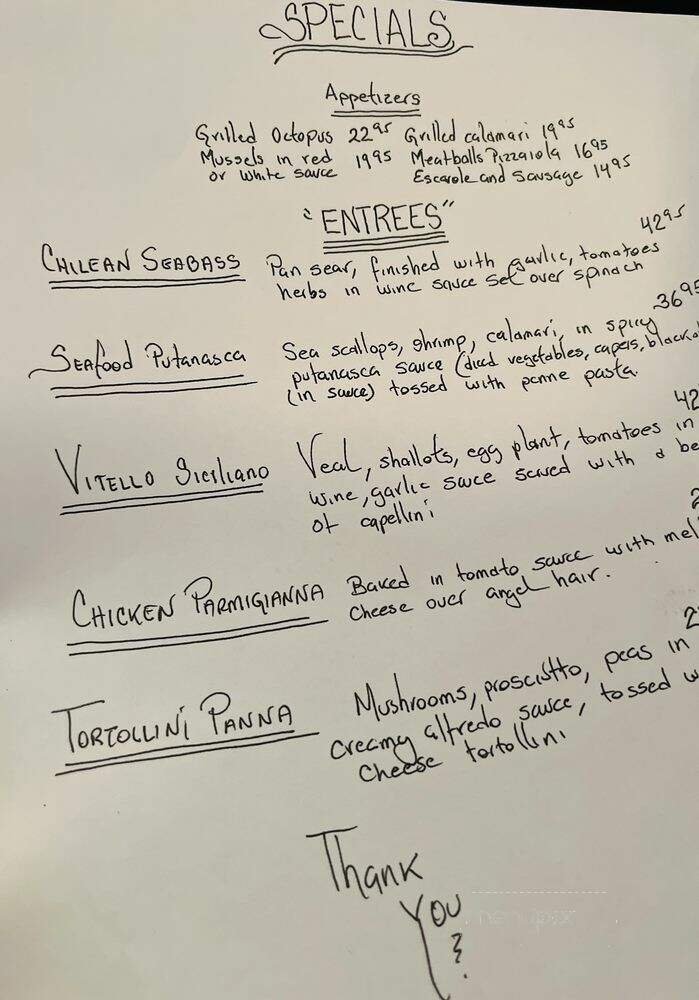 SPECIALS
Appetizers
Grilled Octopus 22⁹⁵ Grilled calamari 19⁹⁵
Mussels in red 19⁹⁵ Meatballs Pizzaiola 16⁹⁵
or white sauce Escarole and Sausage 14⁹⁵
"ENTREES"
42⁹⁵
CHILEAN SEABASS Pan sear, finished with garlic, tomatoes
herbs in wine sauce set over spinach
36⁹⁵
Seafood Putanasca Sea scallops, shrimp, calamari, in spicy
putanasca sauce (diced vegetables, capers, black
(in sauce) tossed with penne pasta.
42
VITELLO Siciliano Veal, shallots, egg plant, tomatoes in
wine, garlic sauce served with a be
of capellini
2
CHICKEN PARMIGIANNA Baked in tomato sauce with mel
cheese over angel hair.
2
TORTOLLINI PANNA Mushrooms, prosciutto, peas in
creamy alfredo sauce, tossed w
cheese tortollini
Thank
You